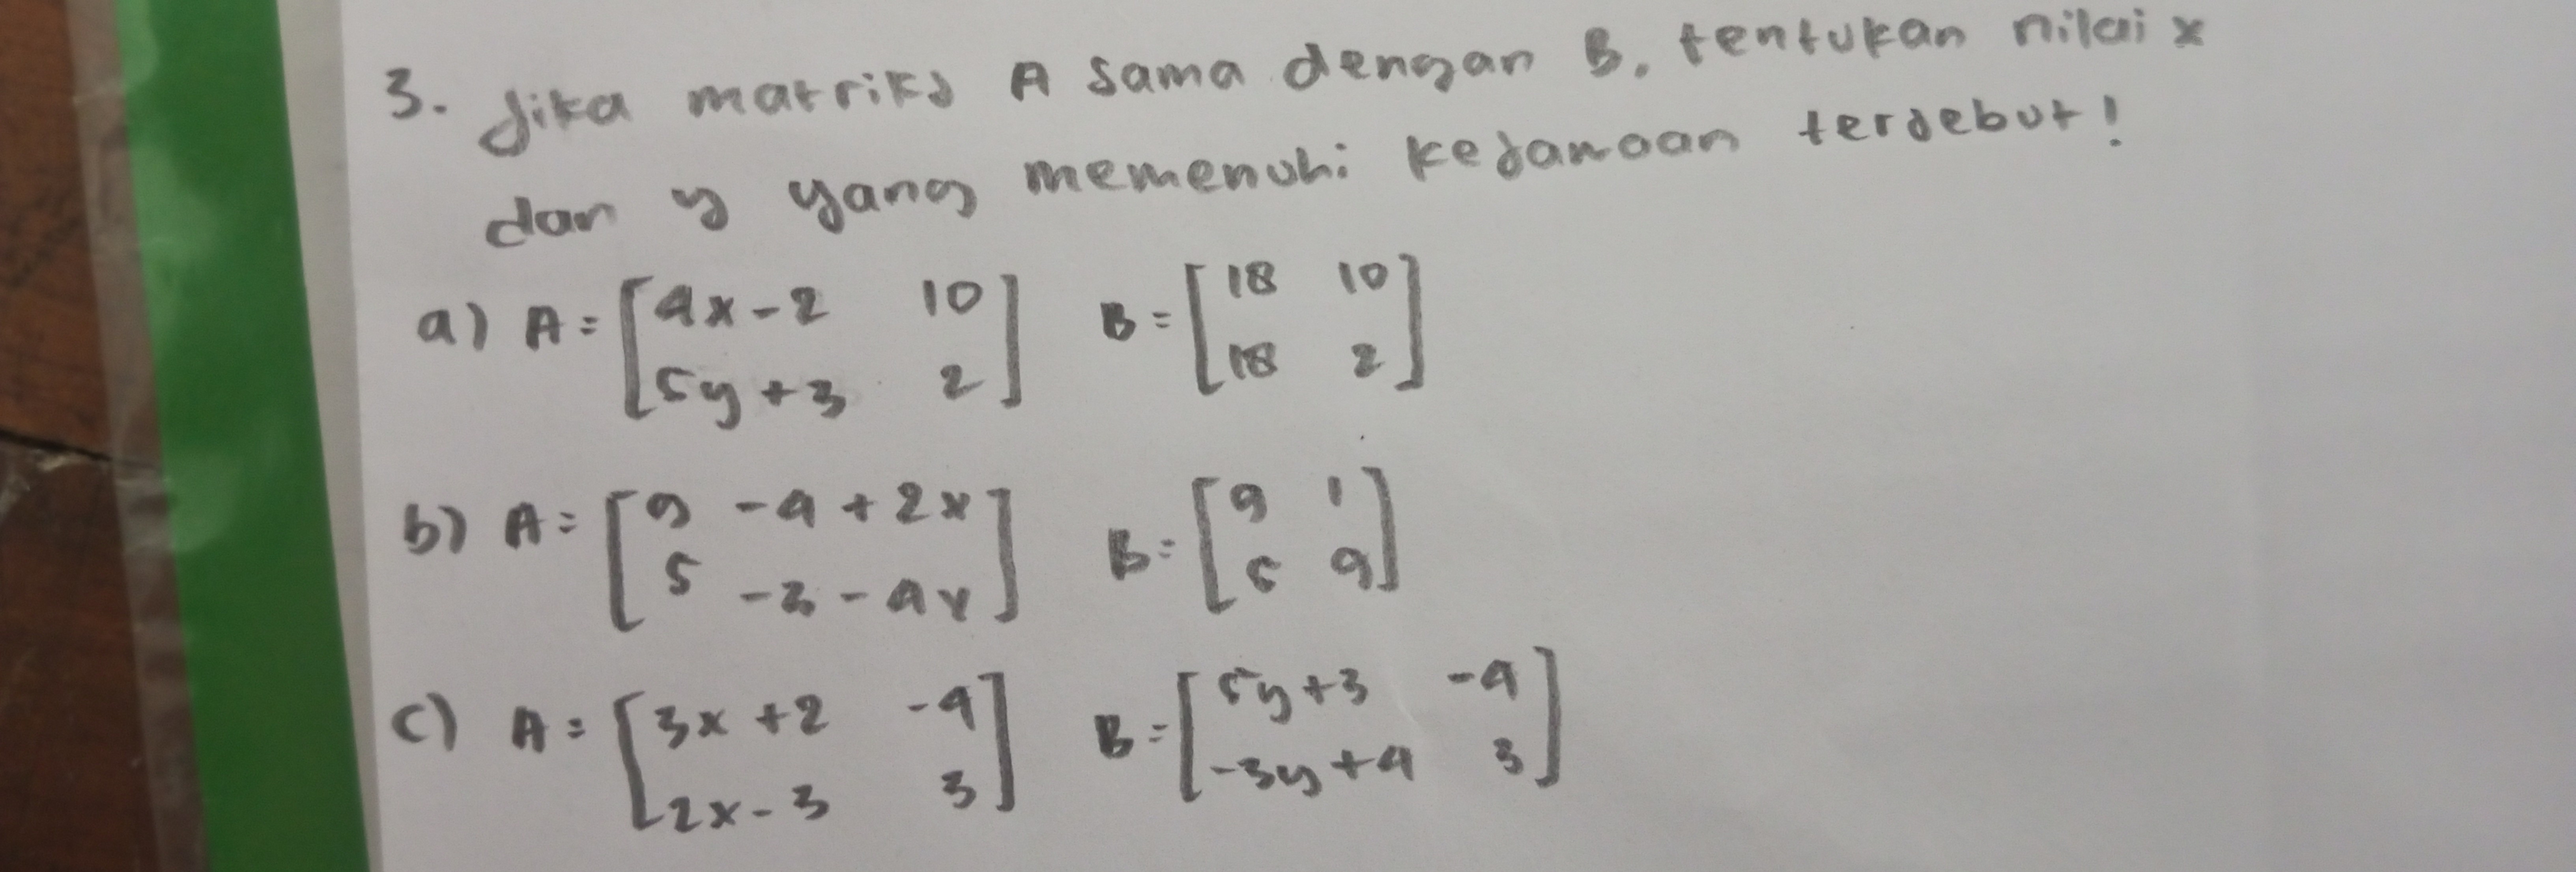 3. Jika matriks A sama dengan B, tentukan nilai x
dan y yang memenuhi kesamaan tersebut!
a) A = [4x-2 10] B = [18 10]
[5y+3 2] [18 2]
b) A = [9 -4+2x] B = [9 1]
[5 -3-4y] [5 9]
c) A = [3x+2 -4] B = [5y+3 -4]
[2x-3 3] [-3y+4 3]